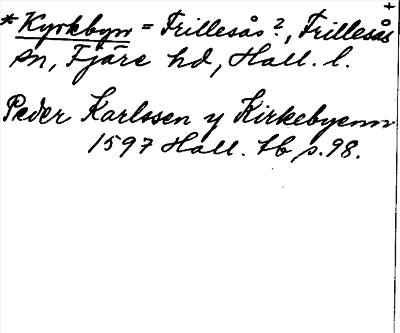 * Kyrkbyn = Frillesås?, Frillesås
sn, Fjäre hd, Hall. l.
Peder Karlssen y Kirkebyenn
1597 Hall. tb s. 98.